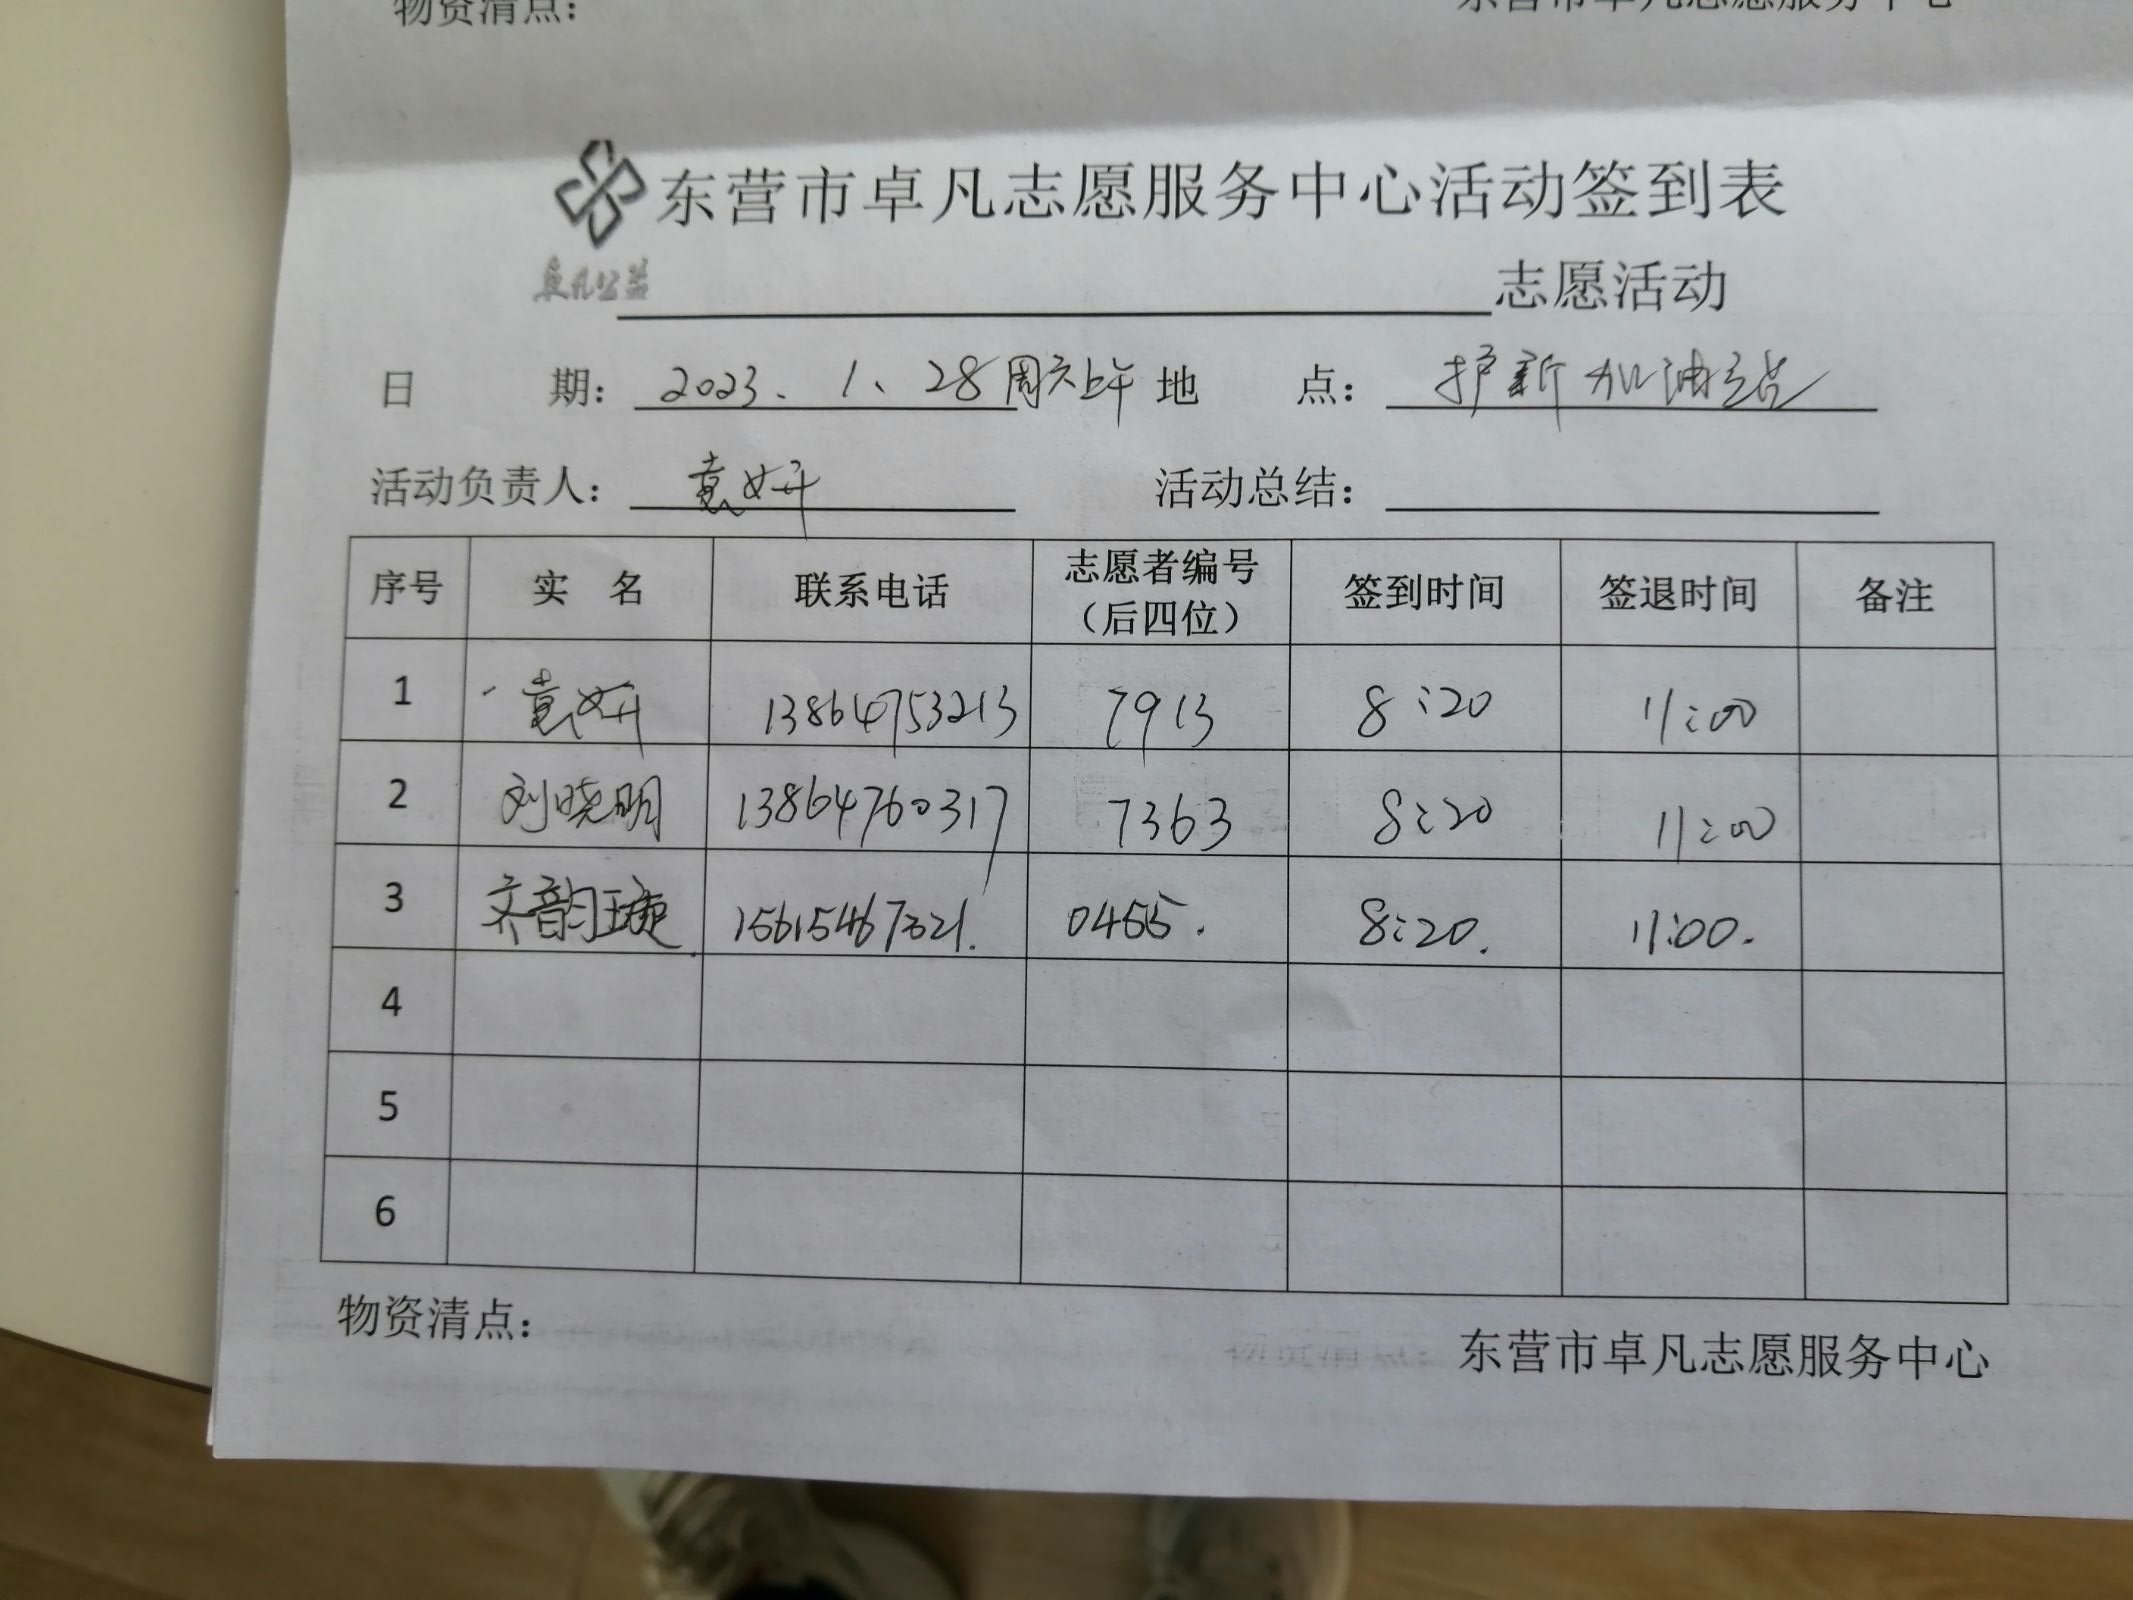 物资清点：
东营市卓凡志愿服务中心
东营市卓凡志愿服务中心活动签到表
卓凡公益
志愿活动
日 期：2023、1、28周六上午 地 点：护新加油站
活动负责人：袁妍 活动总结：
序号 实 名 联系电话 志愿者编号（后四位） 签到时间 签退时间 备注
1 袁妍 13864753213 7913 8:20 11:00
2 刘晓明 13864760317 7363 8:20 11:00
3 齐韵 15615467321. 0455. 8:20. 11:00.
4
5
6
物资清点：
东营市卓凡志愿服务中心